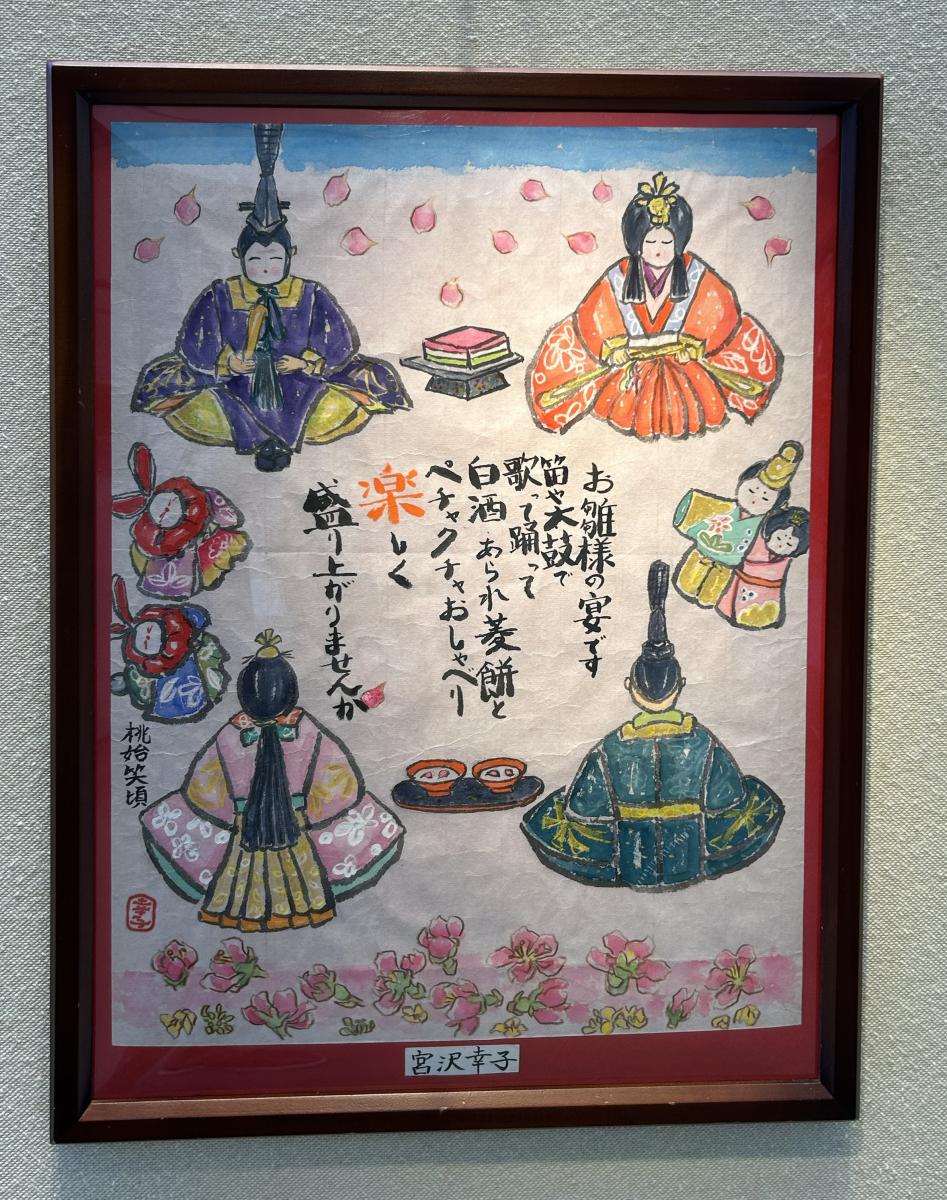 お雛様の宴です
笛や太鼓で
歌って踊って
白酒・あられ菱餅と
ペチャクチャおしゃべり
楽しく
盛り上がりませんか
桃始笑頃
宮沢幸子